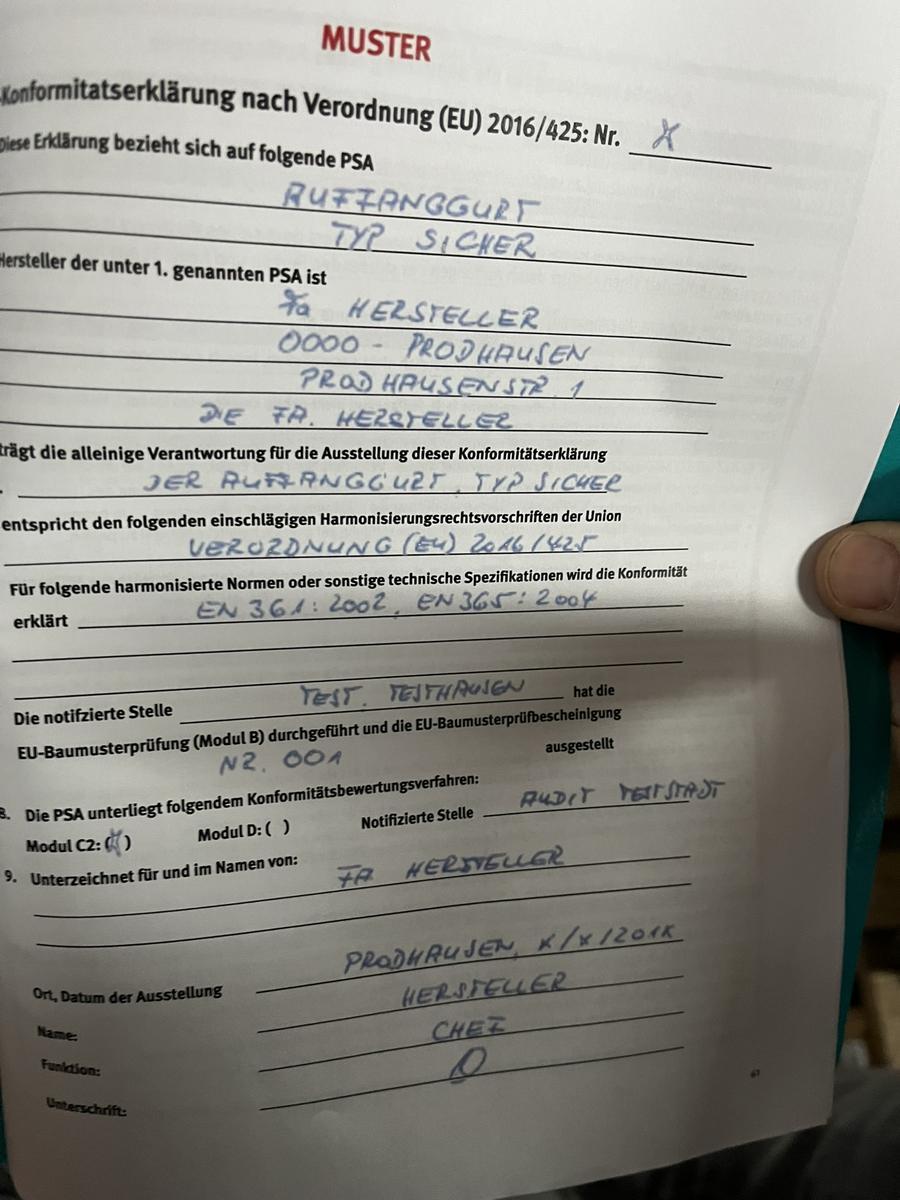 MUSTER
Konformitatserklärung nach Verordnung (EU) 2016/425: Nr. X
Diese Erklärung bezieht sich auf folgende PSA
AUFFANGGURT
TYP SICHER
Hersteller der unter 1. genannten PSA ist
Fa HERSTELLER
0000 - PRODHAUSEN
PRODHAUSENSTR. 1
DIE FA. HERSTELLER
trägt die alleinige Verantwortung für die Ausstellung dieser Konformitätserklärung
DER AUFFANGGURT, TYP SICHER
entspricht den folgenden einschlägigen Harmonisierungsrechtsvorschriften der Union
VERORDNUNG (EU) 2016/425
Für folgende harmonisierte Normen oder sonstige technische Spezifikationen wird die Konformität
erklärt EN 361: 2002, EN 365: 2004
Die notifzierte Stelle TEST. TESTHAUSEN hat die
EU-Baumusterprüfung (Modul B) durchgeführt und die EU-Baumusterprüfbescheinigung
NR. 001 ausgestellt
8. Die PSA unterliegt folgendem Konformitätsbewertungsverfahren:
Modul C2: (X) Modul D: ( ) Notifizierte Stelle AUDIT TESTSTADT
9. Unterzeichnet für und im Namen von:
FA HERSTELLER
Ort, Datum der Ausstellung PRODHAUSEN, X/X/201X
Name: HERSTELLER
Funktion: CHEF
Unterschrift:
61